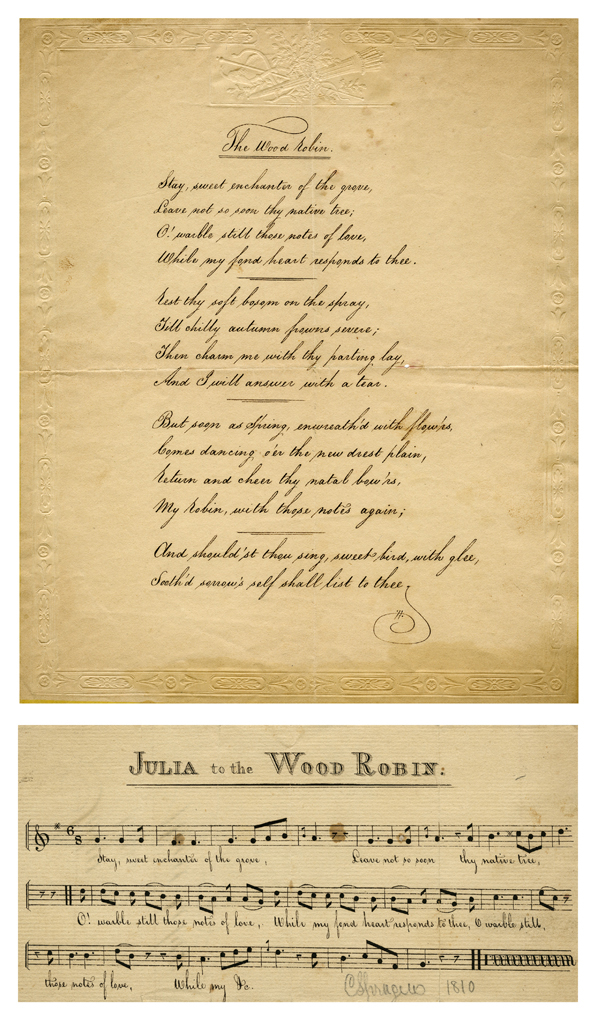 The Wood Robin.
Stay, sweet enchanter of the grove,
Leave not so soon thy native tree;
O! warble still those notes of love,
While my fond heart responds to thee.
Rest thy soft bosom on the spray,
Till chilly autumn frowns severe;
Then charm me with thy parting lay,
And I will answer with a tear.
But soon as Spring, enwreath'd with flow'rs,
Comes dancing o'er the new drest plain,
Return and cheer thy natal bow'rs,
My Robin, with those notes again;
And should'st thou sing, sweet bird, with glee,
Sooth'd sorrow's self shall list to thee.
JULIA to the WOOD ROBIN:
6
8
Stay, sweet enchanter of the grove, Leave not so soon thy native tree,
O! warble still those notes of love, While my fond heart responds to thee, O warble still,
those notes of love, While my &c.
1810